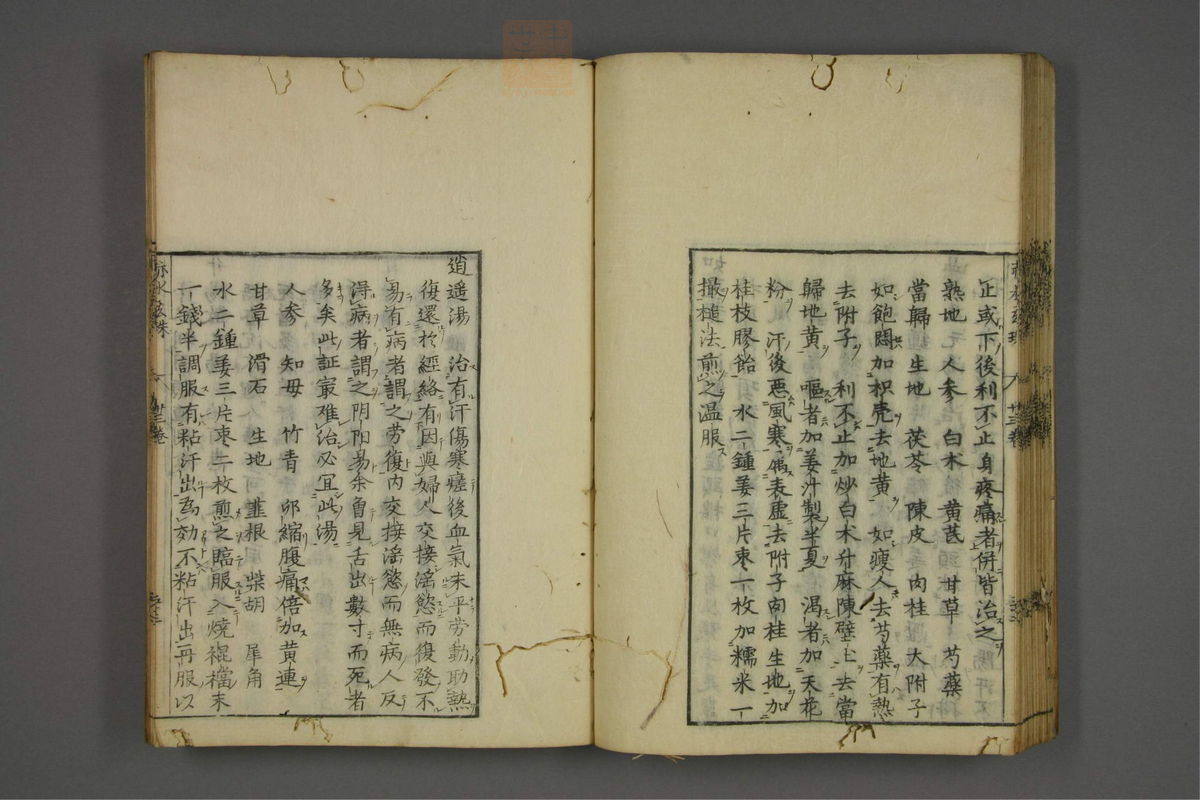 正或下後利不止身疼痛者併皆治之
熟地 人参 白朮 黄芪 甘草 芍薬
當歸 生地 茯苓 陳皮 肉桂 大附子
如飽悶加枳壳去地黄 如瘦人去芍藥有熱
去附子 利不止加炒白朮升麻陳壁土去當
歸地黄 嘔者加姜汁製半夏 渴者加天花
粉 汗後悪風寒 表虚去附子肉桂生地加
桂枝膠飴 水二鍾姜三片枣一枚加糯米一
撮槌法煎之温服
逍遥湯 治有汗傷寒瘥後血氣未平劳動助熱
復還於經絡有因與婦人交接滛慾而復發不
易有病者謂之劳復内交接滛慾而無病人反
得病者謂之阴阳易余自見舌出數寸而死者
多矣此証㝡难治必宜此湯
人参 知母 竹青 卵縮腹痛倍加黄連
甘草 滑石 生地 韮根 柴胡 犀角
水二鍾姜三片枣二枚煎之臨服入焼裩襠末
一錢半調服有粘汗出為効不粘汗出再服以